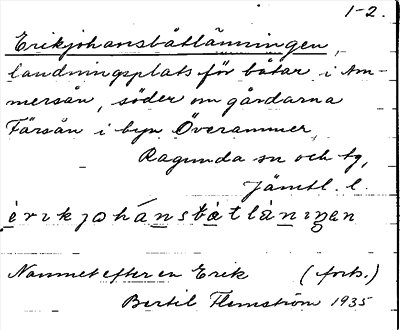 1-2.
Erikjohansbåtlänningen,
landningsplats för båtar i Am-
mersån, söder om gårdarna
Färsån i byn Överammer,
Ragunda sn och tg,
Jämtl. l.
èrikjohánsbàtlàniŋan
Namnet efter en Erik (forts.)
Bertil Flemström 1935